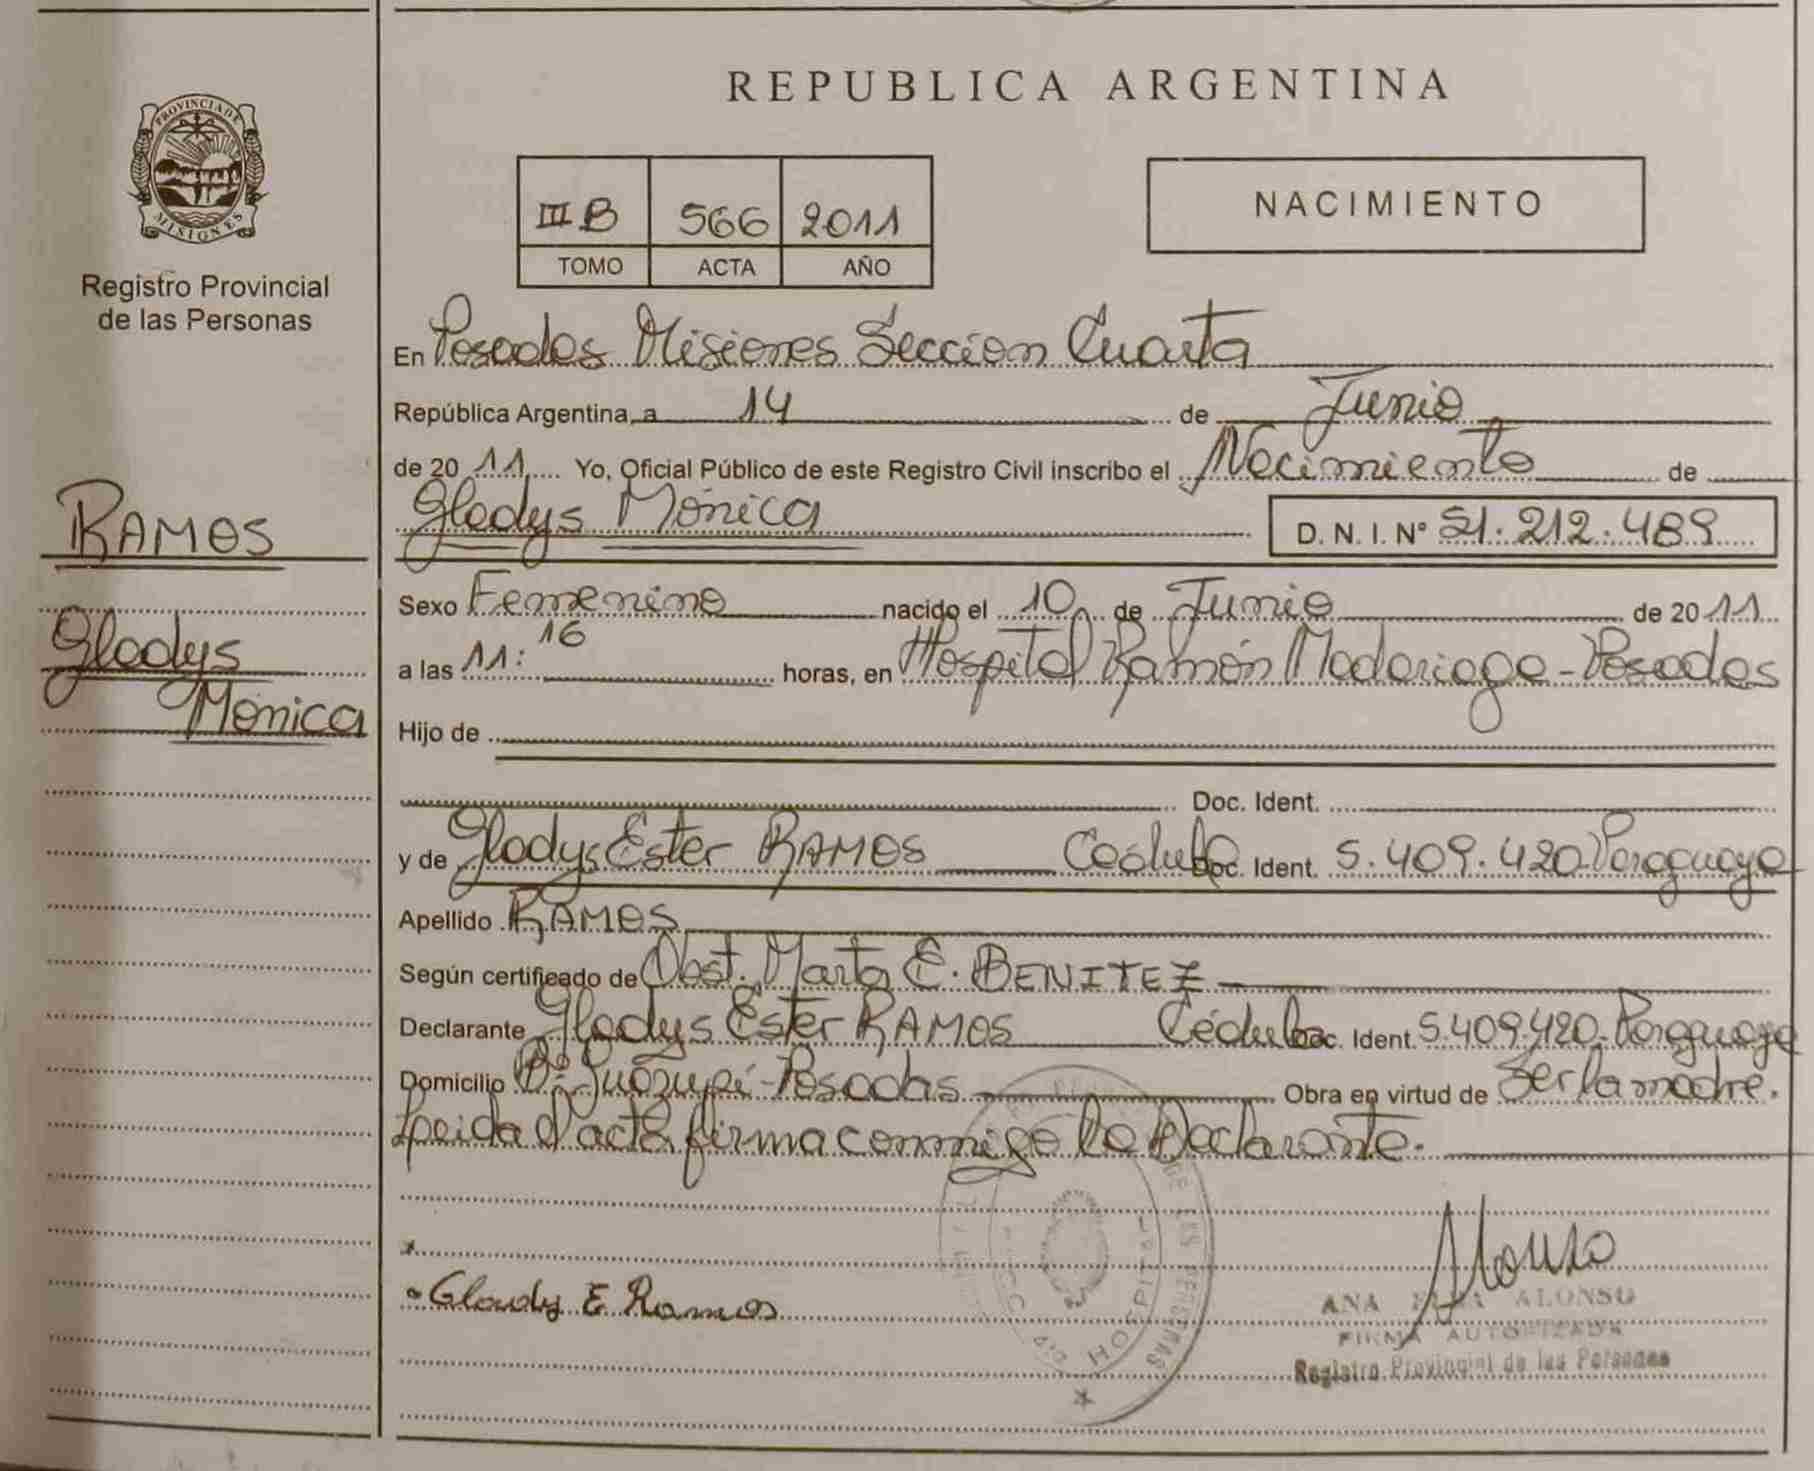 REPUBLICA ARGENTINA
PROVINCIA DE
MISIONES
Registro Provincial
de las Personas
III B 566 2011
TOMO ACTA AÑO
NACIMIENTO
En Posadas Misiones Sección Cuarta
República Argentina, a 14 de Junio
de 20 11 Yo, Oficial Público de este Registro Civil inscribo el Nacimiento de
Gladys Mónica D. N. I. Nº 51.212.489
RAMOS
Gladys
Mónica
Sexo Femenino nacido el 10 de Junio de 20 11
a las 11:16 horas, en Hospital Ramón Madariaga - Posadas
Hijo de
Doc. Ident.
y de Gladys Ester RAMOS Cédula Doc. Ident. 5.409.420 Paraguaya
Apellido RAMOS
Según certificado de Obst. Marta E. BENITEZ
Declarante Gladys Ester RAMOS Cédula Doc. Ident 5.409.420 Paraguaya
Domicilio Bº Posadas Obra en virtud de Ser la madre.
Leida el acta firma conmigo la Declarante.
Glady E Ramos
Alonso
ANA ALONSO
FIRMA AUTORIZADA
Registro Provincial de las Personas
DE LAS PERSONAS
HOSPITAL